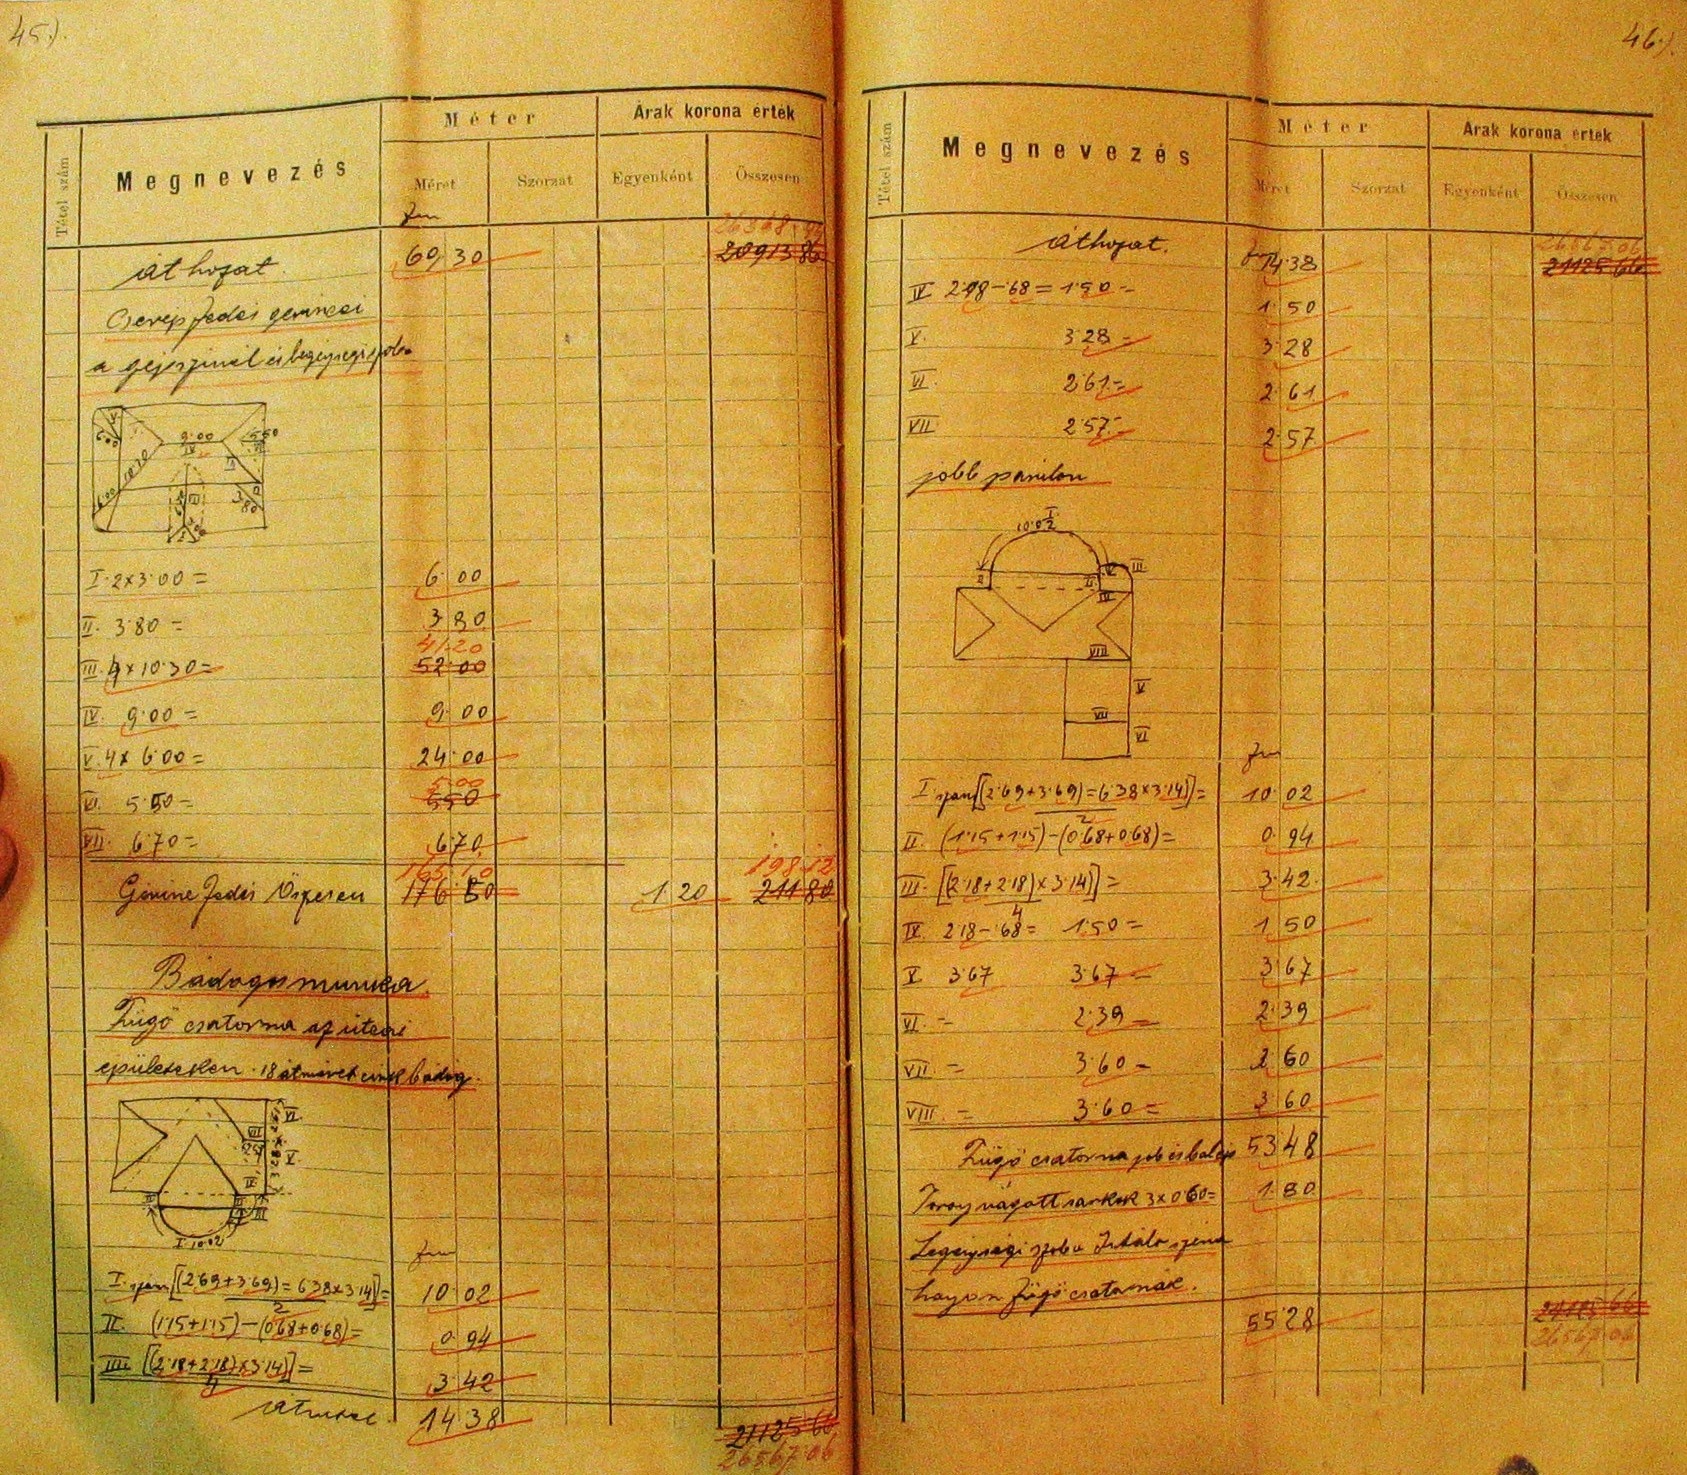 45.).
Tétel szám
Megnevezés
Méter
Árak korona érték
Méret
Szorzat
Egyenként
Összesen
fm
26368.94
áthozat. 69 30 20913 86
Cserépfedés gerincei
a
9.00
IV
10.30
6.00
5.50
3.80
I. 2x3.00= 6.00
II. 3.80= 3.80
41.20
III. 4x10.30= 52.00
IV. 9.00= 9.00
V. 4x6.00= 24.00
5.00
VI. 5.50= 5.50
VII. 6.70= 6.70
165.10 198.12
Gerinc fedés Összesen 176.50 1 20 211 80
Bádogos munka.
Függő csatorna az utcai
épületeken. 18 átméret cink bádog.
VI
VII
V
III
I. 10.02
fm
I. [(2.69+3.69)=6.38x3.14]= 10 02
2
II. (1.15+1.15)-(0.68+0.68)= 0.94
III [(2.18+2.18)x3.14)]= 3 42
4
átvitel. 14 38 21125 66
26567.06
46.).
Tétel szám
Megnevezés
Méter
Árak korona érték
Méret
Szorzat
Egyenként
Összesen
26567.06
áthozat. fm 14.38 21125 66
IV 2.18-.68=1.50= 1.50
V. 3.28= 3.28
VI. 2.61= 2.61
VII 2.57= 2.57
jobb pavilon
I
10.02
III
II
IV
VIII
V
VII
VI
fm
I. [(2.69+3.69)=6.38x3.14)]= 10.02
2
II. (1.15+1.15)-(0.68+0.68)= 0.94
III. [(2.18+2.18)x3.14)]= 3.42
4
IV 2.18-.68= 1.50= 1.50
V 3.67 3.67= 3.67
VI.= 2.39= 2.39
VII= 3.60= 60
VIII.= 3.60= 3.60
Függő csatorna job és 53.48
Torony vágott sarkok 3x0.60= 1.80
Legénységi szoba Istáló széna
függő csatornák.
55.28 21125 66
26567.06